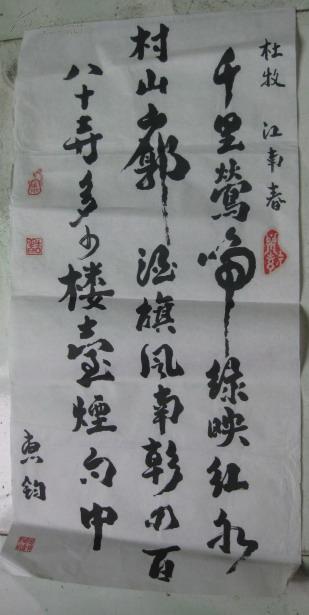 杜牧 江南春
千里鶯啼绿映红水
村山郭酒旗风南朝四百
八十寺多少楼臺煙雨中
惠钧